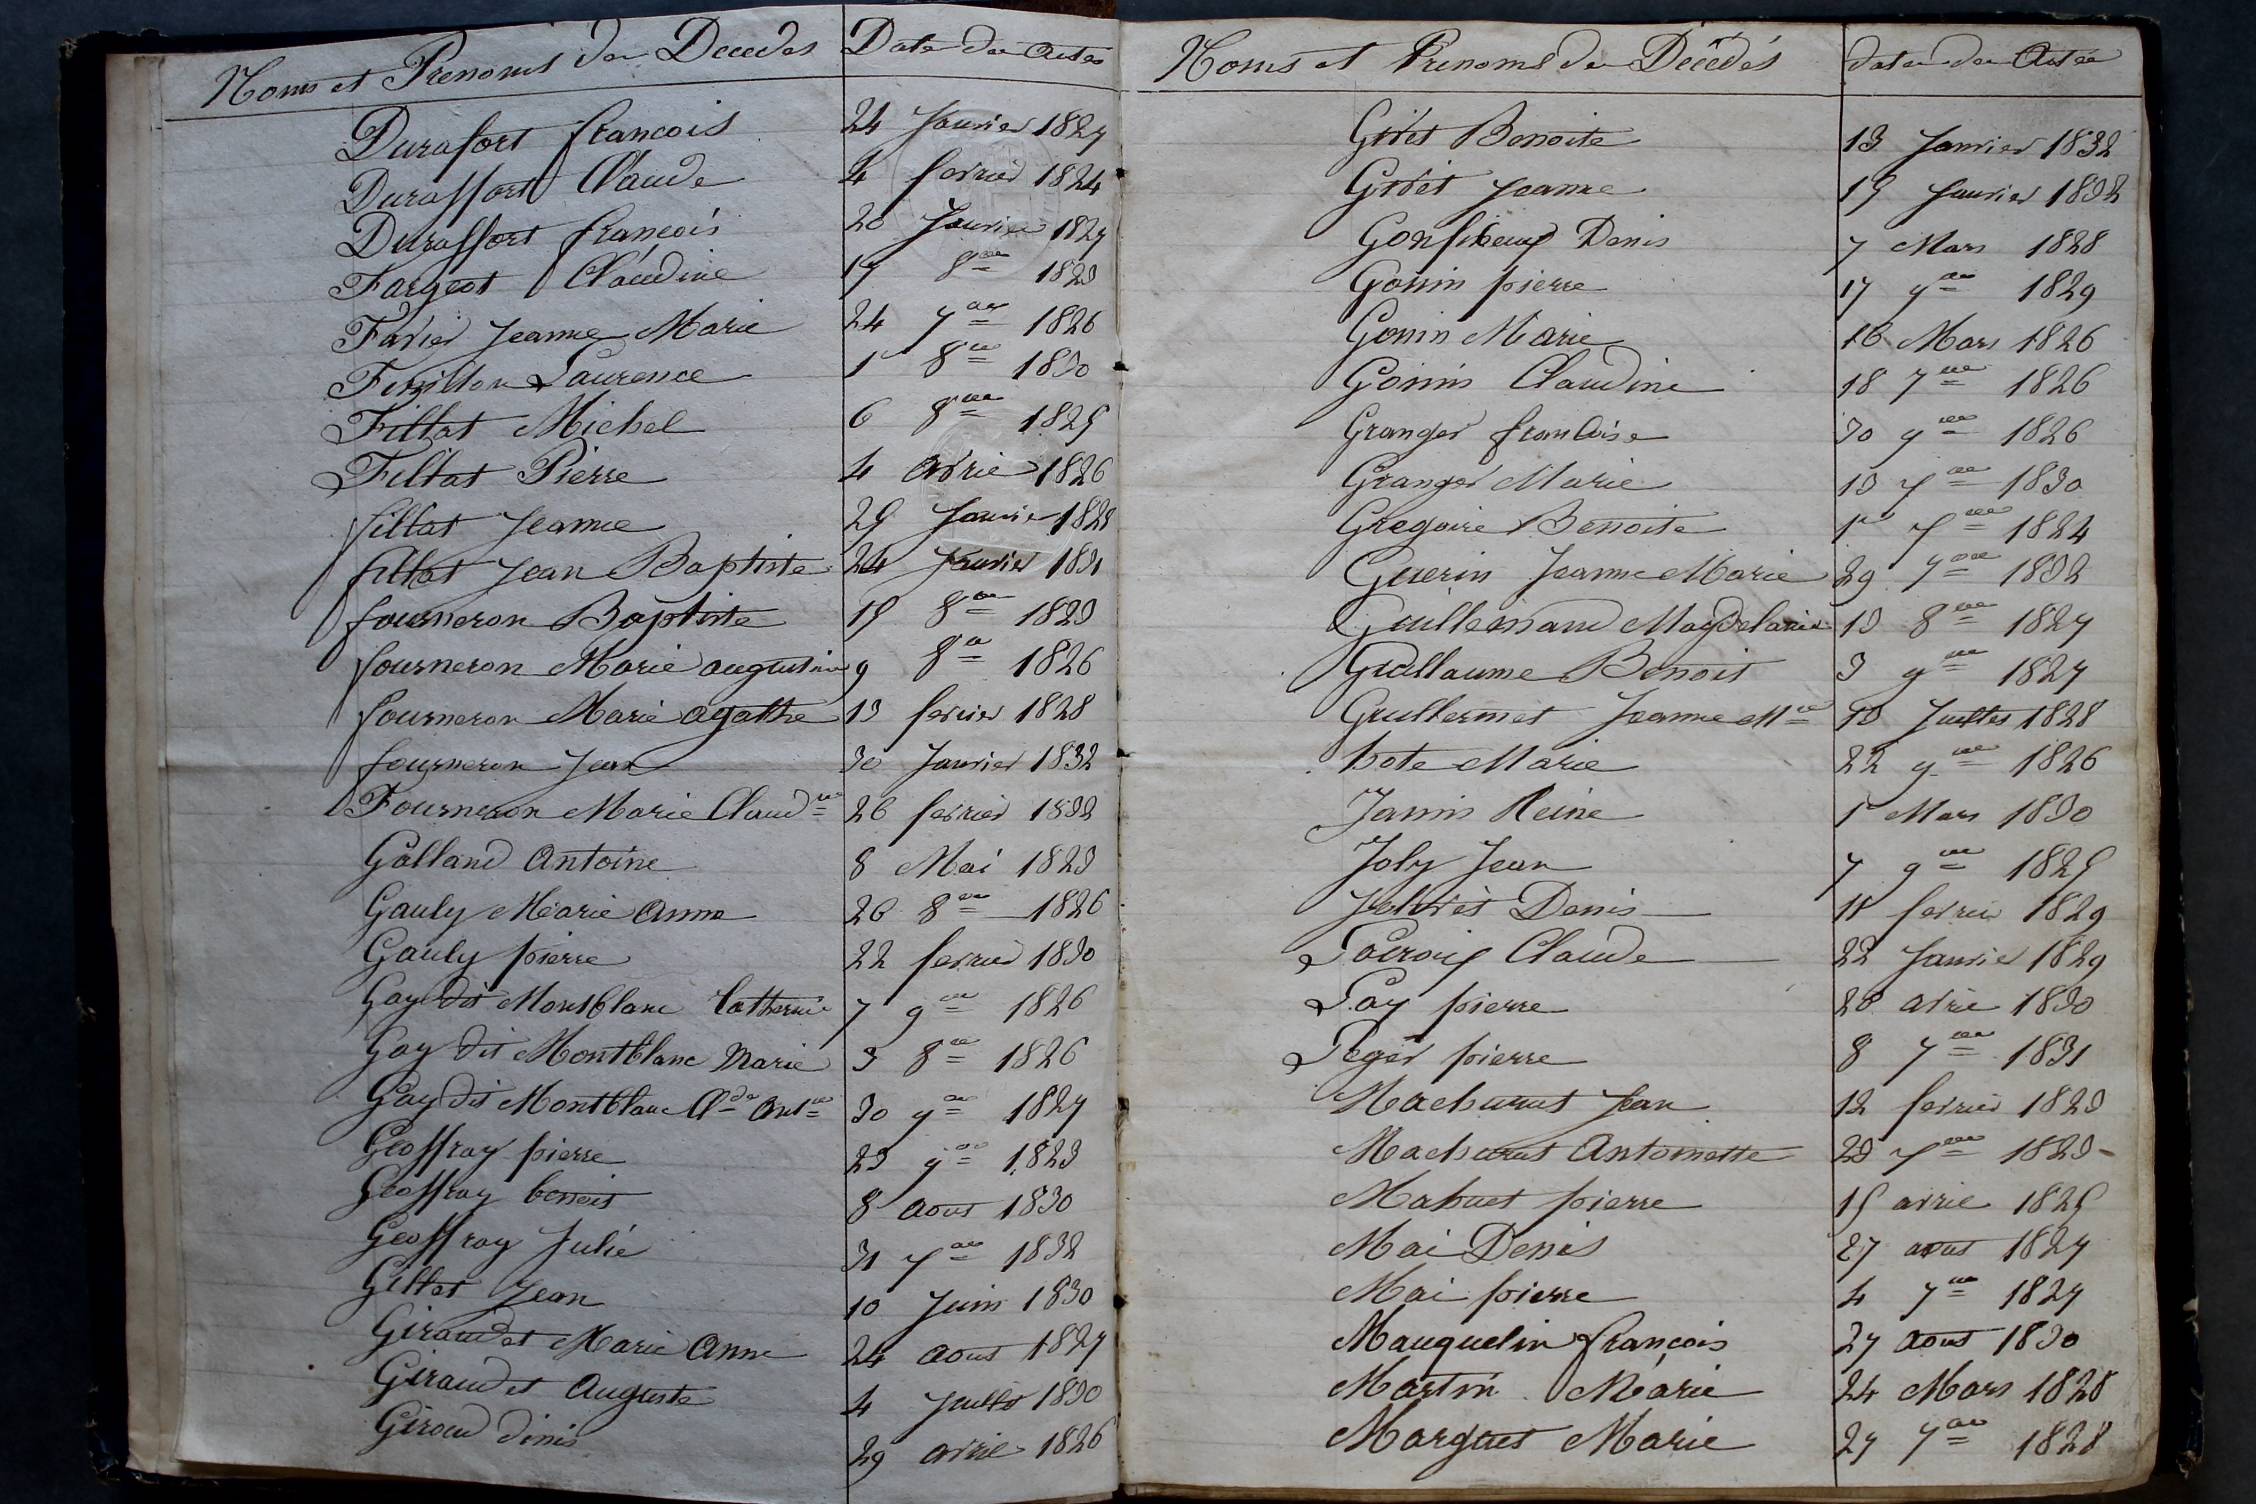 Noms et Prenoms des Décédés Date des Actes
Durafort françois 24 Janvier 1827
Duraffort Claude 4 fevrier 1824
Duraffort françois 20 Janvier 1827
Fargeot Claudine 17 8bre 1823
Favier Jeanne Marie 24 7bre 1826
Laurence 1er 8bre 1830
Fillat Michel 6 8bre 1825
Fillat Pierre 4 avril 1826
fillat Jeanne 25 Janvier 1828
fillat Jean Baptiste 24 Janvier 1831
fourneron Baptiste 15 8bre 1823
fourneron Marie augustine 9 8bre 1826
fourneron Marie agathe 13 fevrier 1828
fourneron Jean 30 Janvier 1832
Fourneron Marie Claudne 26 fevrier 1832
Galland Antoine 8 Mai 1823
Gauly Marie Anne 26 8bre 1826
Gauly pierre 22 fevrier 1830
Gay dit Montblanc Catherine 7 9bre 1826
Gay dit Montblanc Marie 3 8bre 1826
Gay dit Montblanc Cde Antne 30 9bre 1827
Geoffray pierre 23 9bre 1823
Geoffray benoit 8 aout 1830
Geoffray Julie 31 7bre 1832
Gillet Jean 10 Juin 1830
Giraudet Marie Anne 24 aout 1827
Giraudet Auguste 4 Juillet 1830
Giroud dinis 29 avril 1826
Noms et Prenoms des Décédés dates des Actes
Givet Benoite 13 Janvier 1832
Givet Jeanne 15 Janvier 1832
Denis 7 Mars 1828
Gonin pierre 17 9bre 1829
Gonin Marie 16 Mars 1826
Gonin Claudine 18 7bre 1826
Granger francoise 30 9bre 1826
Granger Marie 13 7bre 1830
Gregoire Benoite 1er 7bre 1824
Guerin Jeanne Marie 29 7bre 1832
Guillemaud Magdelaine 13 8bre 1827
Guillaume Benoit 3 9bre 1827
Guillermet Jeanne Mie 10 Juillet 1828
hote Marie 22 9bre 1826
Janin Reine 1er Mars 1830
Joly Jean 7 9bre 1825
Denis 11 fevrier 1829
Lacroix Claude 22 Janvier 1829
Lay pierre 28 avril 1830
Leger pierre 8 7bre 1831
Machurat Jean 12 fevrier 1823
Machurat Antoinette 23 7bre 1823
Mahuet pierre 15 avril 1825
Mai Denis 27 aout 1827
Mai pierre 4 7bre 1827
Mauguelin françois 27 aout 1830
Martin Marie 24 Mars 1828
Marguet Marie 27 7bre 1828